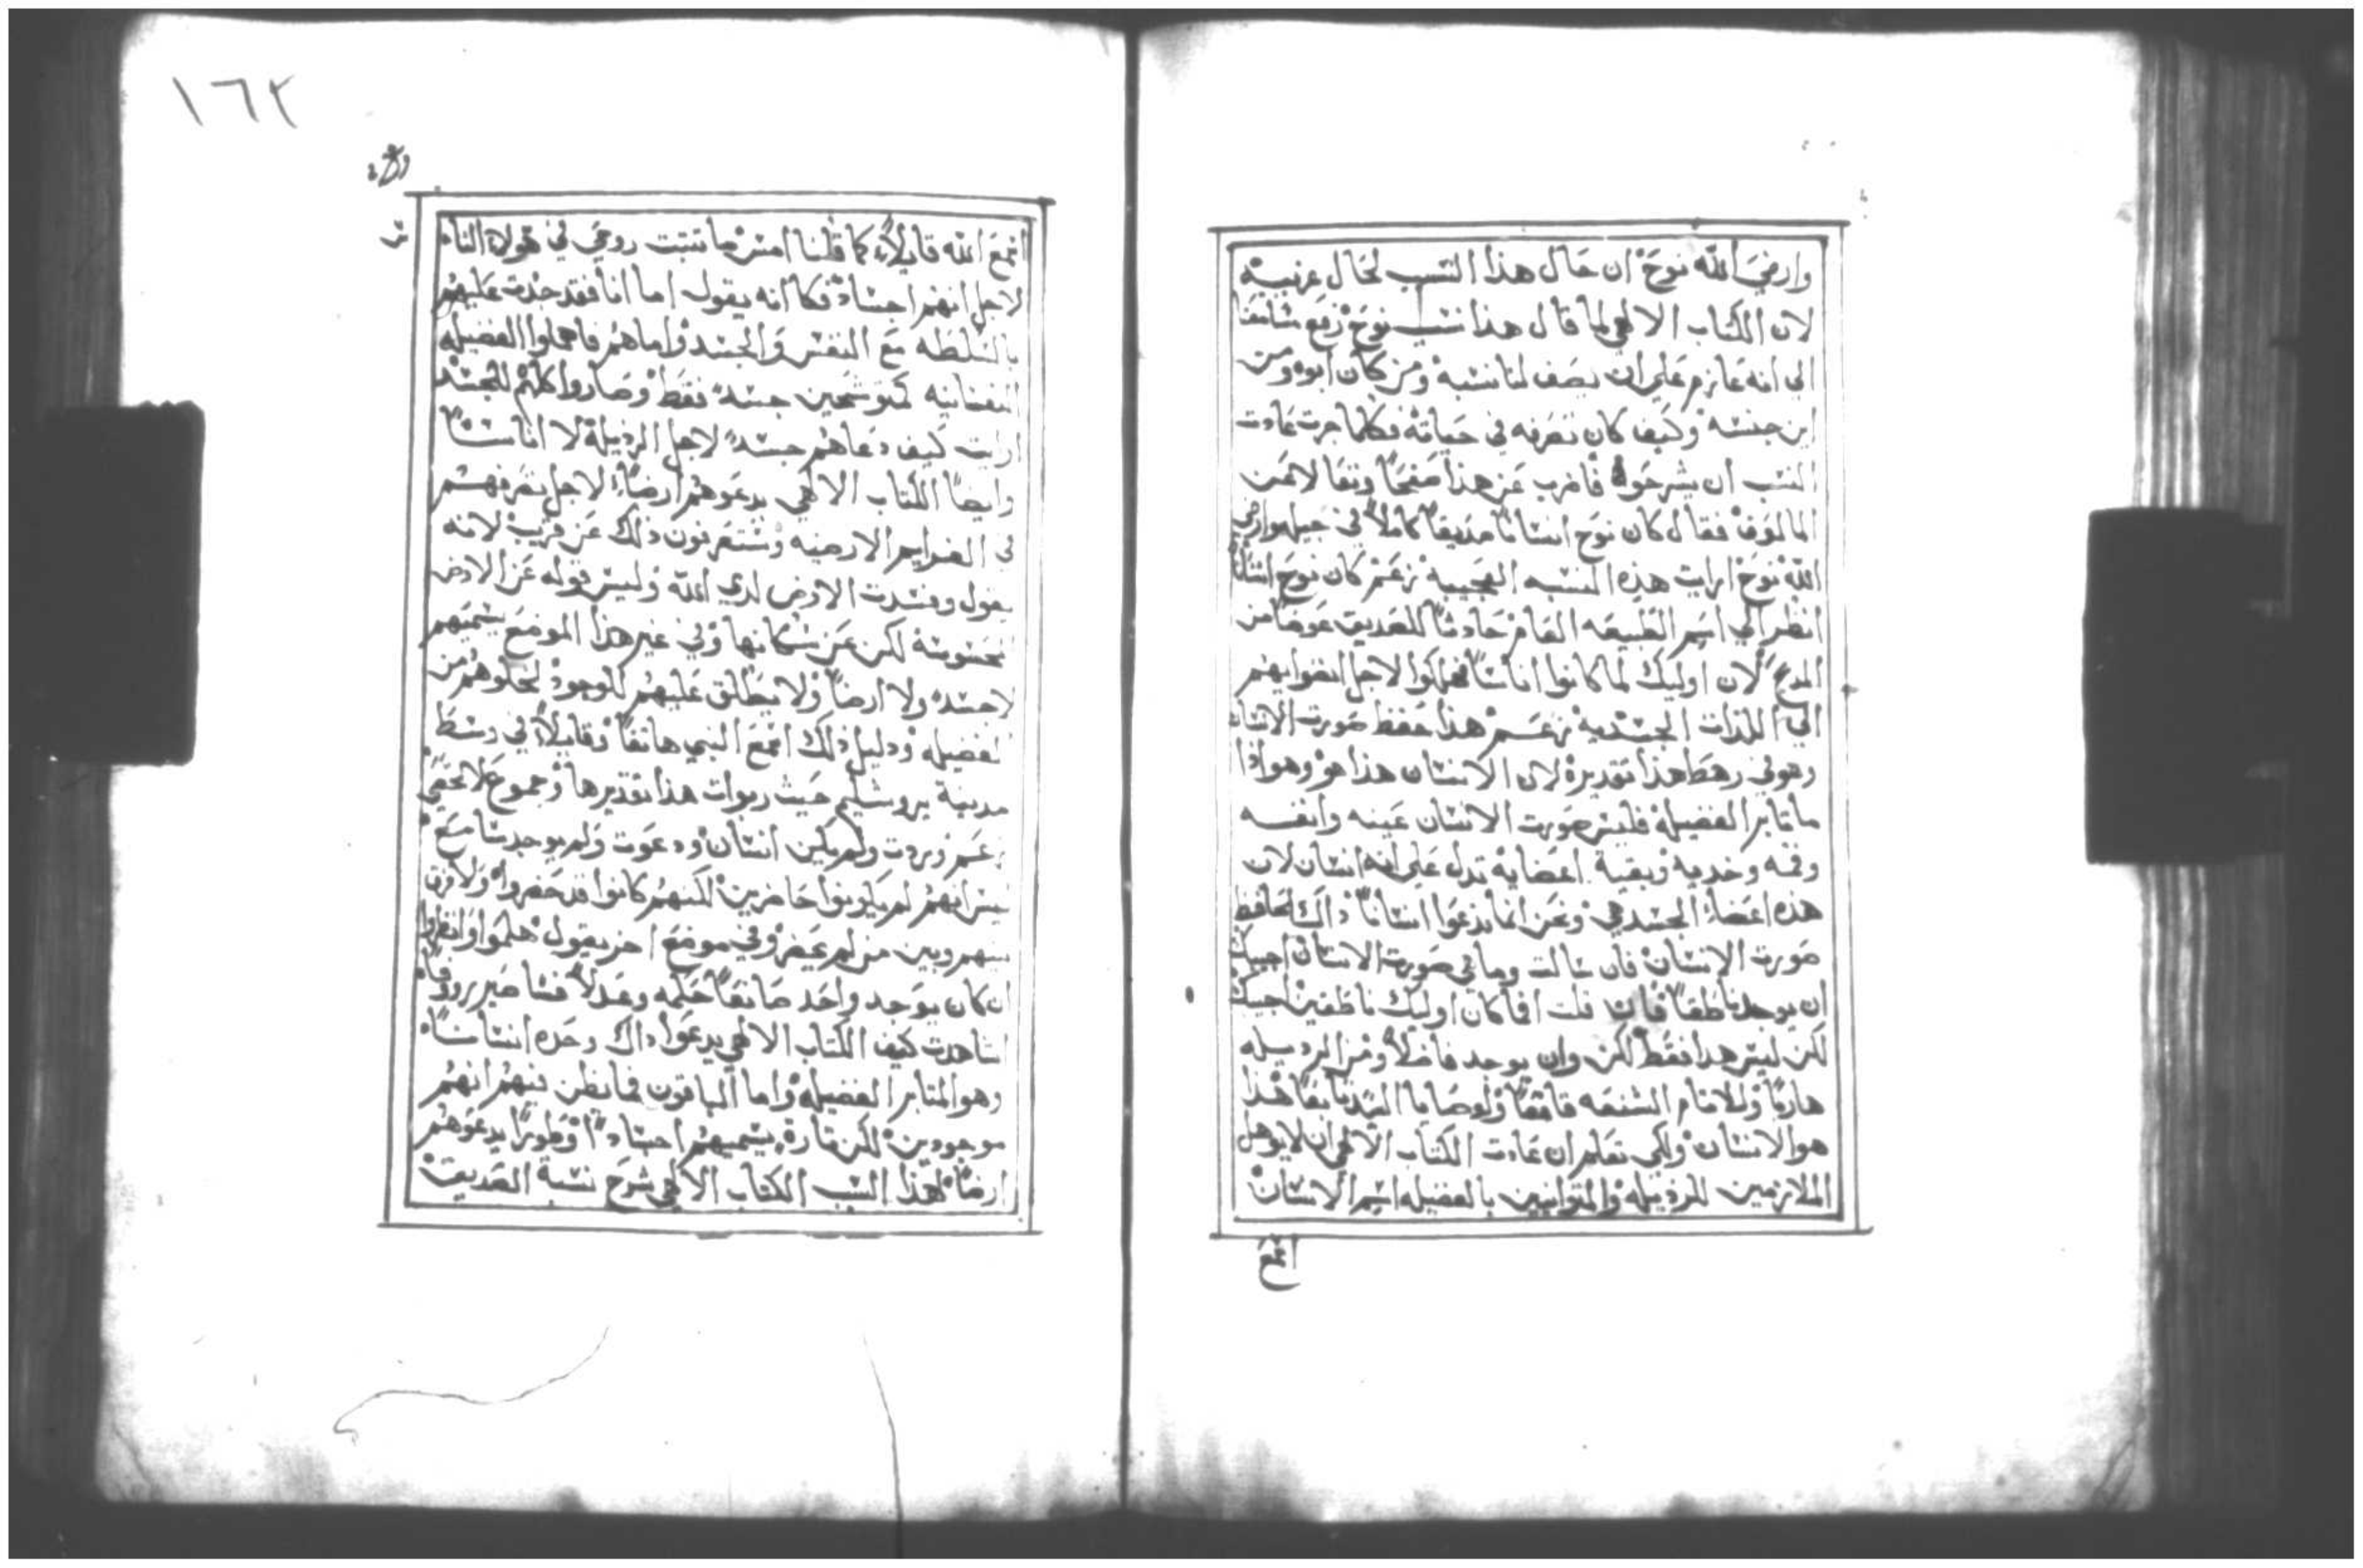 وارضي الله نوح ان حال هذا النسب لحال غريبه
لان الكتاب الالهي لما قال هذا نسب نوح رفع سامعنا
الى انه عازم على ان يصف لنا نسبه ومن كان ابوه ومن
اين جنسه وكيف كان تصرفه في حياته فكلما جرت عادت
النسب ان يشرحوه فاضرب عن هذا صفحا وتعالا عن
المالوف فقال كان نوح انسانا صديقا كاملا في جيله وارضي
الله نوح ارايت هذه النسبه العجيبه زعم كان نوح انسانا
انظر الي اسم الطبيعه العام حادثا للصديق عوضا من
المدح لان اوليك لما كانوا اناسا فهلكوا لاجل انضوايهم
الي اللذات الجسديه زعم هذا حفظ صورت الانسان
وهو في رهط هذا تقديره لان الانسان هذا هو وهو اذا
ما ثابر الفضيله فليس صورت الانسان عينه وانفسه
وفمه وخديه وبقية اعضايه تدل على انه انسان لان
هذه اعضا الجسد هي ونحن انما ندعوا انسانا ذاك الحافظ
صورت الانسان فان سالت وما هي صورت الانسان اجيبك
ان يوجد ناطقا فان قلت افما كان اوليك ناطقين اجيبك
لكن ليس هدا فقط لكن وان يوجد فاضلا ومن الرديله
هاربا وللالام الشنعه قامعا ولوصايا السيد تابعا هذا
هو الانسان ولكي تعلم ان عادت الكتاب الالهي ان لا يوهل
الملازمين للرذيله والمتوانيين بالفضيله اسم الانسان
اسمع
١٦٢
اسمع الله قايلا كما قلنا امس ما تثبت روحي في هولاء الناس
لاجل انهم اجساد فكانه يقول اما انا فقد جدت عليهم
بالسلطه مع النفس والجسد واما هم فاهملوا الفضيله
النفسانيه كمتوشحين جسدا فقط وصاروا كلهم للجسد
ارايت كيف دعاهم جسدا لاجل الرذيله لا اناسا
وايضا الكتاب الالهي يدعوهم ارضا لاجل تصرفهم
في الارضيه وستعرفون ذلك عن قريب لانه
يقول وفسدت الارض لدي الله وليس قوله عن الارض
المحسوسه لكن عن سكانها وفي غير هذا الموضع يسميهم
لا جسدا ولا ارضا ولا يطلق عليهم الوجود لخلوهم من
الفضيله ودليل ذلك اسمع النبي هاتفا وقايلا في وسط
مدينة يروشليم حيث ربوات هذا تقديرها وجموع لا تحصي
زعم وردت ولم يكن انسان ودعوت ولم يوجد سامع
ليس انهم لم يكونوا حاضرين لكنهم كانوا قد حضروا ولا فرق
بينهم وبين من لم يحضر وفي موضع اخر يقول هلموا وانظروا
ان كان يوجد واحد صانعا حكمه وعدلا فسا صير رووفا
اشاهدت كيف الكتاب الالهي يدعوا ذاك وحده انسانا
وهو المثابر الفضيله واما الباقون فما يظن فيهم انهم
موجودين لكن تارة يسميهم اجسادا وطورا يدعوهم
ارضا لهذا السبب الكتاب الالهي شرح نسبة الصديق